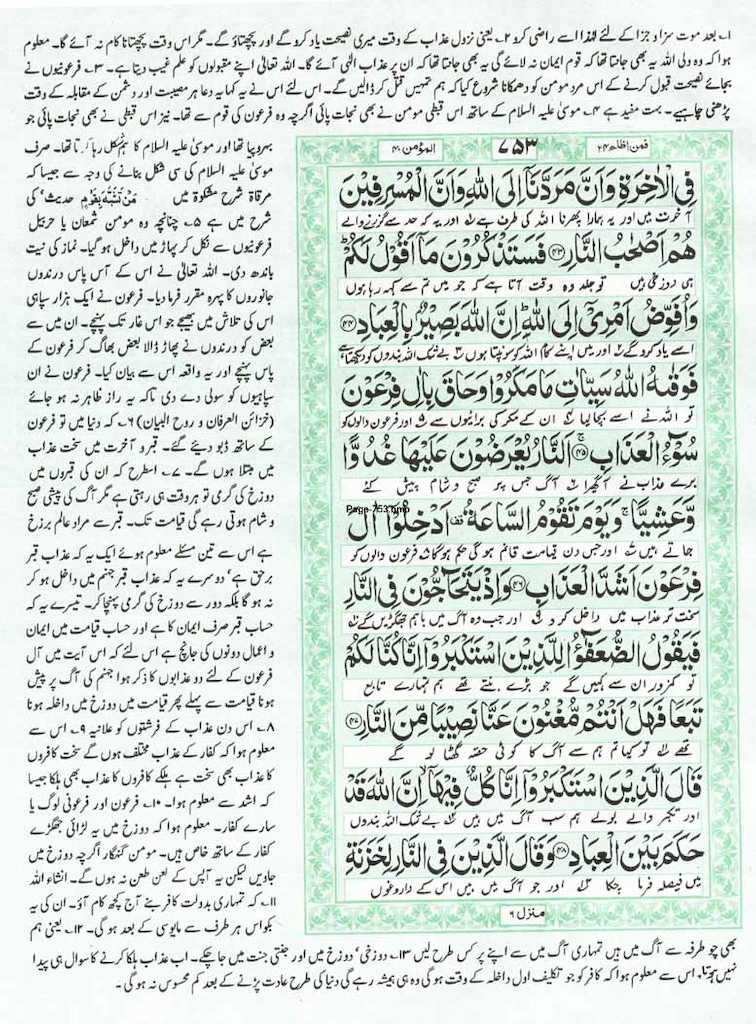 ۱۔ بعد موت سزا و جزا کے لئے لہٰذا اسے راضی کرو ۲۔ یعنی نزول عذاب کے وقت میری نصیحت یاد کرو گے اور پچھتاؤ گے۔ مگر اس وقت پچھتانا کام نہ آئے گا۔ معلوم
ہوا کہ وہ ولی اللہ یہ بھی جانتا تھا کہ قوم ایمان نہ لائے گی یہ بھی جانتا تھا کہ ان پر عذاب الٰہی آئے گا۔ اللہ تعالیٰ اپنے مقبولوں کو علم غیب دیتا ہے۔ ۳۔ فرعونیوں نے
بجائے نصیحت قبول کرنے کے اس مرد مومن کو دھمکانا شروع کیا کہ ہم تمہیں قتل کر ڈالیں گے۔ اس لئے اس نے یہ کہا یہ دعا ہر مصیبت اور دشمن کے مقابلہ کے وقت
پڑھنی چاہیے۔ بہت مفید ہے ۴۔ موسیٰ علیہ السلام کے ساتھ اس قبطی مومن نے بھی نجات پائی اگرچہ وہ فرعون کی قوم سے تھا۔ نیز اس قبطی نے بھی نجات پائی جو
فمن اظلم ۲۴ ۷۵۳ المؤمن ۴۰
فِی الْاٰخِرَةِ وَاَنَّ مَرَدَّنَاۤ اِلَی اللّٰهِ وَاَنَّ الْمُسْرِفِیْنَ
آخرت میں اور یہ ہمارا پھرنا اللہ کی طرف ہے ۱ اور یہ کہ حد سے گزرنے والے
هُمْ اَصْحٰبُ النَّارِ ﴿۴۳﴾ فَسَتَذْكُرُوْنَ مَاۤ اَقُوْلُ لَكُمْ
ہی دوزخی ہیں تو جلد وہ وقت آتا ہے کہ جو میں تم سے کہہ رہا ہوں
وَاُفَوِّضُ اَمْرِیْۤ اِلَی اللّٰهِ اِنَّ اللّٰهَ بَصِیْرٌۢ بِالْعِبَادِ ﴿۴۴﴾
اسے یاد کرو گے ۲ اور میں اپنے کام اللہ کو سونپتا ہوں بے شک اللہ بندوں کو دیکھتا ہے
فَوَقٰىهُ اللّٰهُ سَیِّاٰتِ مَا مَكَرُوْا وَحَاقَ بِاٰلِ فِرْعَوْنَ
تو اللہ نے اسے بچا لیا ان کے مکر کی برائیوں سے اور فرعون والوں کو
سُوْٓءُ الْعَذَابِ ﴿۴۵﴾ اَلنَّارُ یُعْرَضُوْنَ عَلَیْهَا غُدُوًّا
برے عذاب نے آ گھیرا آگ جس پر صبح و شام پیش کئے
وَّعَشِیًّا وَیَوْمَ تَقُوْمُ السَّاعَةُ اَدْخِلُوْۤا اٰلَ
Page-753.bmp
جاتے ہیں اور جس دن قیامت قائم ہو گی حکم ہو گا فرعون والوں کو
فِرْعَوْنَ اَشَدَّ الْعَذَابِ ﴿۴۶﴾ وَاِذْ یَتَحَآجُّوْنَ فِی النَّارِ
سخت تر عذاب میں داخل کرو اور جب وہ آگ میں باہم جھگڑیں گے
فَیَقُوْلُ الضُّعَفٰٓؤُا لِلَّذِیْنَ اسْتَكْبَرُوْۤا اِنَّا كُنَّا لَكُمْ
تو کمزور ان سے کہیں گے جو بڑے بنتے تھے ہم تمہارے تابع
تَبَعًا فَهَلْ اَنْتُمْ مُّغْنُوْنَ عَنَّا نَصِیْبًا مِّنَ النَّارِ ﴿۴۷﴾
تھے تو کیا تم ہم سے آگ کا کوئی حصہ گھٹا لو گے
قَالَ الَّذِیْنَ اسْتَكْبَرُوْۤا اِنَّا كُلٌّ فِیْهَاۤ اِنَّ اللّٰهَ قَدْ
اور تکبر والے بولے ہم سب آگ میں ہیں بے شک اللہ بندوں
حَكَمَ بَیْنَ الْعِبَادِ ﴿۴۸﴾ وَقَالَ الَّذِیْنَ فِی النَّارِ لِخَزَنَةِ
میں فیصلہ فرما چکا اور جو آگ میں ہیں اس کے داروغوں
منزل ۶
بہروپیا تھا اور موسیٰ علیہ السلام کا ہم شکل رہا کرتا تھا۔ صرف
موسیٰ علیہ السلام کی سی شکل بنانے کی وجہ سے جیسا کہ
مرقاۃ شرح مشکوٰۃ میں مَنْ تَشَبَّهَ بِقَوْمٍ حدیث کی
شرح میں ہے ۵۔ چنانچہ وہ مومن شمعان یا حزبیل
فرعونیوں سے نکل کر پہاڑ میں داخل ہو گیا۔ نماز کی نیت
باندھ دی۔ اللہ تعالیٰ نے اس کے آس پاس درندوں
جانوروں کا پہرہ مقرر فرما دیا۔ فرعون نے ایک ہزار سپاہی
اس کی تلاش میں بھیجے جو اس غار تک پہنچے۔ ان میں سے
بعض کو درندوں نے پھاڑ ڈالا بعض بھاگ کر فرعون کے
پاس پہنچے اور یہ واقعہ اس سے بیان کیا۔ فرعون نے ان
سپاہیوں کو سولی دے دی تاکہ یہ راز ظاہر نہ ہو جائے
(خزائن العرفان و روح البیان) ۶۔ کہ دنیا میں تو فرعون
کے ساتھ ڈبو دیئے گئے۔ قبر و آخرت میں سخت عذاب
میں مبتلا ہوں گے۔ ۷۔ اسطرح کہ ان کی قبروں میں
دوزخ کی گرمی تو ہر وقت ہی رہتی ہے مگر آگ کی پیشی صبح
و شام ہوتی رہے گی قیامت تک۔ قبر سے مراد عالم برزخ
ہے اس سے تین مسئلے معلوم ہوئے ایک یہ کہ عذاب قبر
برحق ہے، دوسرے یہ کہ عذاب قبر جہنم میں داخل ہو کر
نہ ہو گا بلکہ دور سے دوزخ کی گرمی پہنچا کر۔ تیسرے یہ کہ
حساب قبر صرف ایمان کا ہے اور حساب قیامت میں ایمان
و اعمال دونوں کی جانچ ہے اس لئے کہ اس آیت میں آل
فرعون کے لئے دو عذابوں کا ذکر ہوا جہنم کی آگ پر پیش
ہونا قیامت سے پہلے پھر قیامت میں دوزخ میں داخلہ ہونا
۸۔ اس دن عذاب کے فرشتوں کو علانیہ ۹۔ اس سے
معلوم ہوا کہ کفار کے عذاب مختلف ہوں گے سخت کافروں
کا عذاب بھی سخت ہے ہلکے کافروں کا عذاب بھی ہلکا جیسا
کہ اشد سے معلوم ہوا۔ ۱۰۔ فرعون اور فرعونی لوگ یا
سارے کفار۔ معلوم ہوا کہ دوزخ میں یہ لڑائی جھگڑے
کفار کے ساتھ خاص ہیں۔ مومن گنہگار اگرچہ دوزخ میں
جاویں لیکن یہ آپس کے لعن طعن نہ ہوں گے۔ انشاء اللہ
۱۱۔ کہ تمہاری بدولت کافر بنے آج کچھ کام آؤ۔ ان کی یہ
بکواس ہر طرف سے مایوسی کے بعد ہو گی۔ ۱۲۔ یعنی ہم
بھی چو طرفہ سے آگ میں ہیں تمہاری آگ میں سے اپنے پر کس طرح لیں ۱۳۔ دوزخی، دوزخ میں اور جنتی جنت میں جا چکے۔ اب عذاب ہلکا کرنے کا سوال ہی پیدا
نہیں ہوتا۔ اس سے معلوم ہوا کہ کافر کو جو تکلیف اول داخلہ کے وقت ہو گی وہ ہی ہمیشہ رہے گی دنیا کی طرح عادت پڑنے کے بعد کم محسوس نہ ہو گی۔